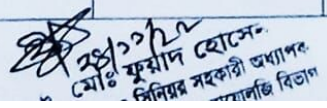 ২৪/১১/২২
মোঃ ফুয়াদ হোসেন
সিনিয়র সহকারী অধ্যাপক
বিভাগ